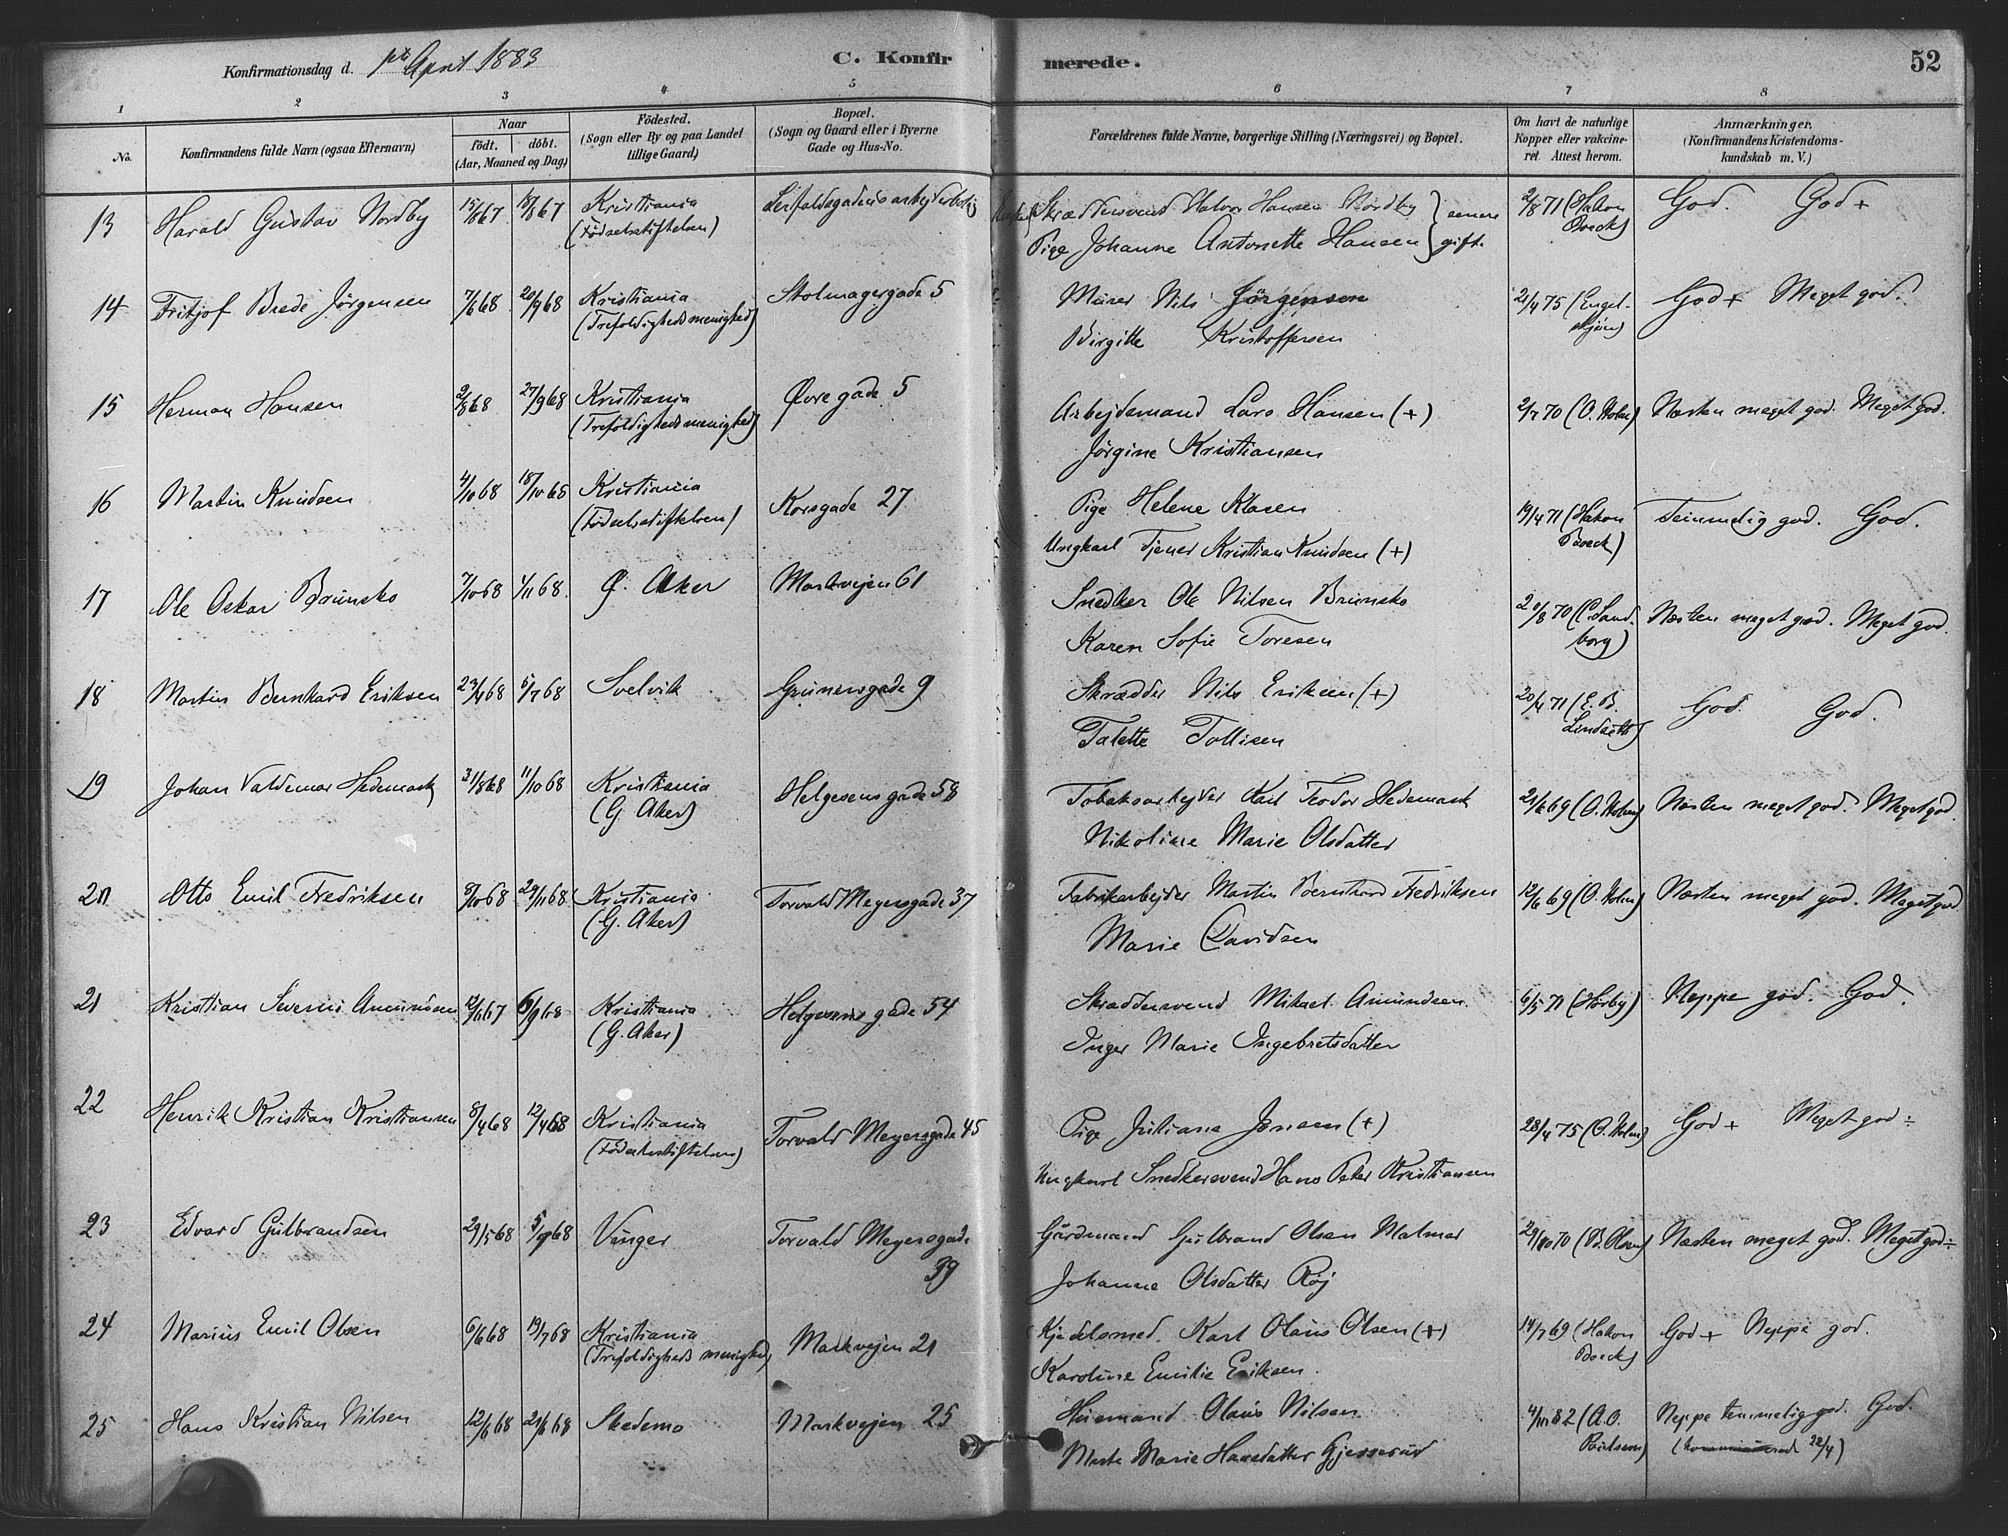 Konfirmationsdag d. 1ste April 1883
C. Konfirmerede.
52
1 2 3 4 5 6 7 8
No.
Konfirmandens fulde Navn (ogsaa Efternavn)
Naar
födt. döbt.
(Aar, Maaned og Dag)
Födested.
(Sogn eller By og paa Landet
tillige Gaard)
Bopæl.
(Sogn og Gaard eller i Byerne
Gade og Hus-No.
Forældrenes fulde Navne, borgerlige Stilling (Næringsvei) og Bopæl.
Om havt de naturlige
Kopper eller vakcine-
ret. Attest herom.
Anmærkninger.
(Konfirmandens Kristendoms-
kundskab m. V.)
13 Harald Gustav Nordby 15/8 67 18/8 67 Kristiania
(Födselsstiftelsen)
Skræddersvend Halvor Hansen Nordby } senere
Pige Johanne Antonette Hansen } gift.
2/8 71 (Hakon
Boeck)
God. God +
14 Fritjof Brede Jörgensen 7/6 68 20/9 68 Kristiania
(Trefoldighedsmenighed)
Stolmagergade 5
Murer Nils Jörgensen
Birgitte Kristoffersen
21/4 75 (Engel-
skjön)
God + Meget god.
15 Herman Hansen 2/8 68 27/9 68 Kristiania
(Trefoldighedsmenighed)
Övre gade 5
Arbejdsmand Lars Hansen (+)
Jörgine Kristiansen
2/7 70 (O. Holm) Næsten meget god. Meget god.
16 Martin Knudsen 4/10 68 18/10 68 Kristiania
(Födselsstiftelsen)
Korsgade 27
Pige Helene Klasen
Ungkarl Tjener Kristian Knudsen (+)
19/4 71 (Hakon
Boeck)
Temmelig god. God.
17 Ole Oskar Brunsko 7/10 68 1/11 68. Ö. Aker Markvejen 61
Snedker Ole Nilsen Brunsko
Karen Sofie Toresen
20/8 70 (C. Sand-
borg)
Næsten meget god. Meget god.
18 Martin Bernhard Eriksen 23/4 68 5/7 68 Svelvik Grünersgade 9
Skrædder Nils Eriksen (+)
Talette Tollisen
20/4 71 (E. B.
Lindseth)
God. God.
19 Johan Valdemar Hedemark 31/8 68 11/10 68 Kristiania
(G. Aker)
Helgesens gade 58
Tobaksarbejder Karl Teodor Hedemark
Nikoline Marie Olsdatter
21/6 69 (O. Holm) Næsten meget god. Meget god.
20 Otto Emil Fredriksen 8/10 68 29/11 68 Kristiania
(G. Aker)
Torvald Meyersgade 37
Fabrikarbejder Martin Bernhard Fredriksen
Marie Davidsen
12/6 69 (O. Holm) Næsten meget god. Meget god
21 Kristian Severin Amundsen 12/6 67 6/9 68 Kristiania
(G. Aker)
Helgesens gade 54
Skræddersvend Mikael Amundsen.
Inger Marie Ingebretsdatter
6/5 71 (Hörby) Neppe god. God.
22 Henrik Kristian Kristiansen 8/4 68 12/4 68 Kristiania
(Födselsstiftelsen)
Torvald Meyersgade 45
Pige Juliane Jensen (+)
Ungkarl Snedkersvend Hans Peter Kristiansen
28/4 75 (O. Holm) God + Meget god ÷
23 Edvard Gulbrandsen 29/5 68 5/9 68 Vinger Torvald Meyersgade
39
Gårdmand Gulbrand Olsen Malmer
Johanne Olsdatter Röj
29/10 70 (B. Olsen) Næsten meget god. Meget god ÷
24 Marius Emil Olsen 6/6 68 19/7 68 Kristiania
(Trefoldigheds menighed)
Markvejen 21
Kjedelsmed. Karl Olaus Olsen (+)
Karoline Emilie Eriksen.
14/7 69 (Hakon
Boeck)
God + Neppe god.
25 Hans Kristian Nilsen 12/6 68 21/6 68 Skedsmo Markvejen 25
Husmand Olaus Nilsen
Marte Marie Hansdatter Gjesserud
4/10 82 (A. O.
Paulsen)
Neppe temmelig god. God.
22/4)